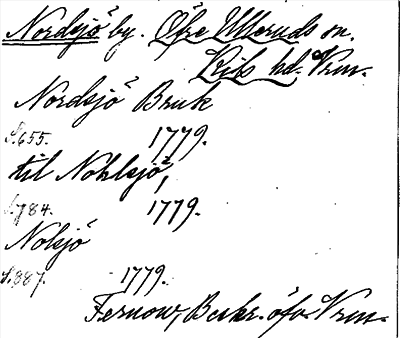 Nordsjö by. Öfre Ulleruds sn.
Kils hd. Vrm.
Nordsjö Bruk
S. 655. 1779.
til Nohlsjö,
S. 784. 1779.
Nolsjö
S. 887. 1779.
Fernow, Beskr. öfv. Vrm.